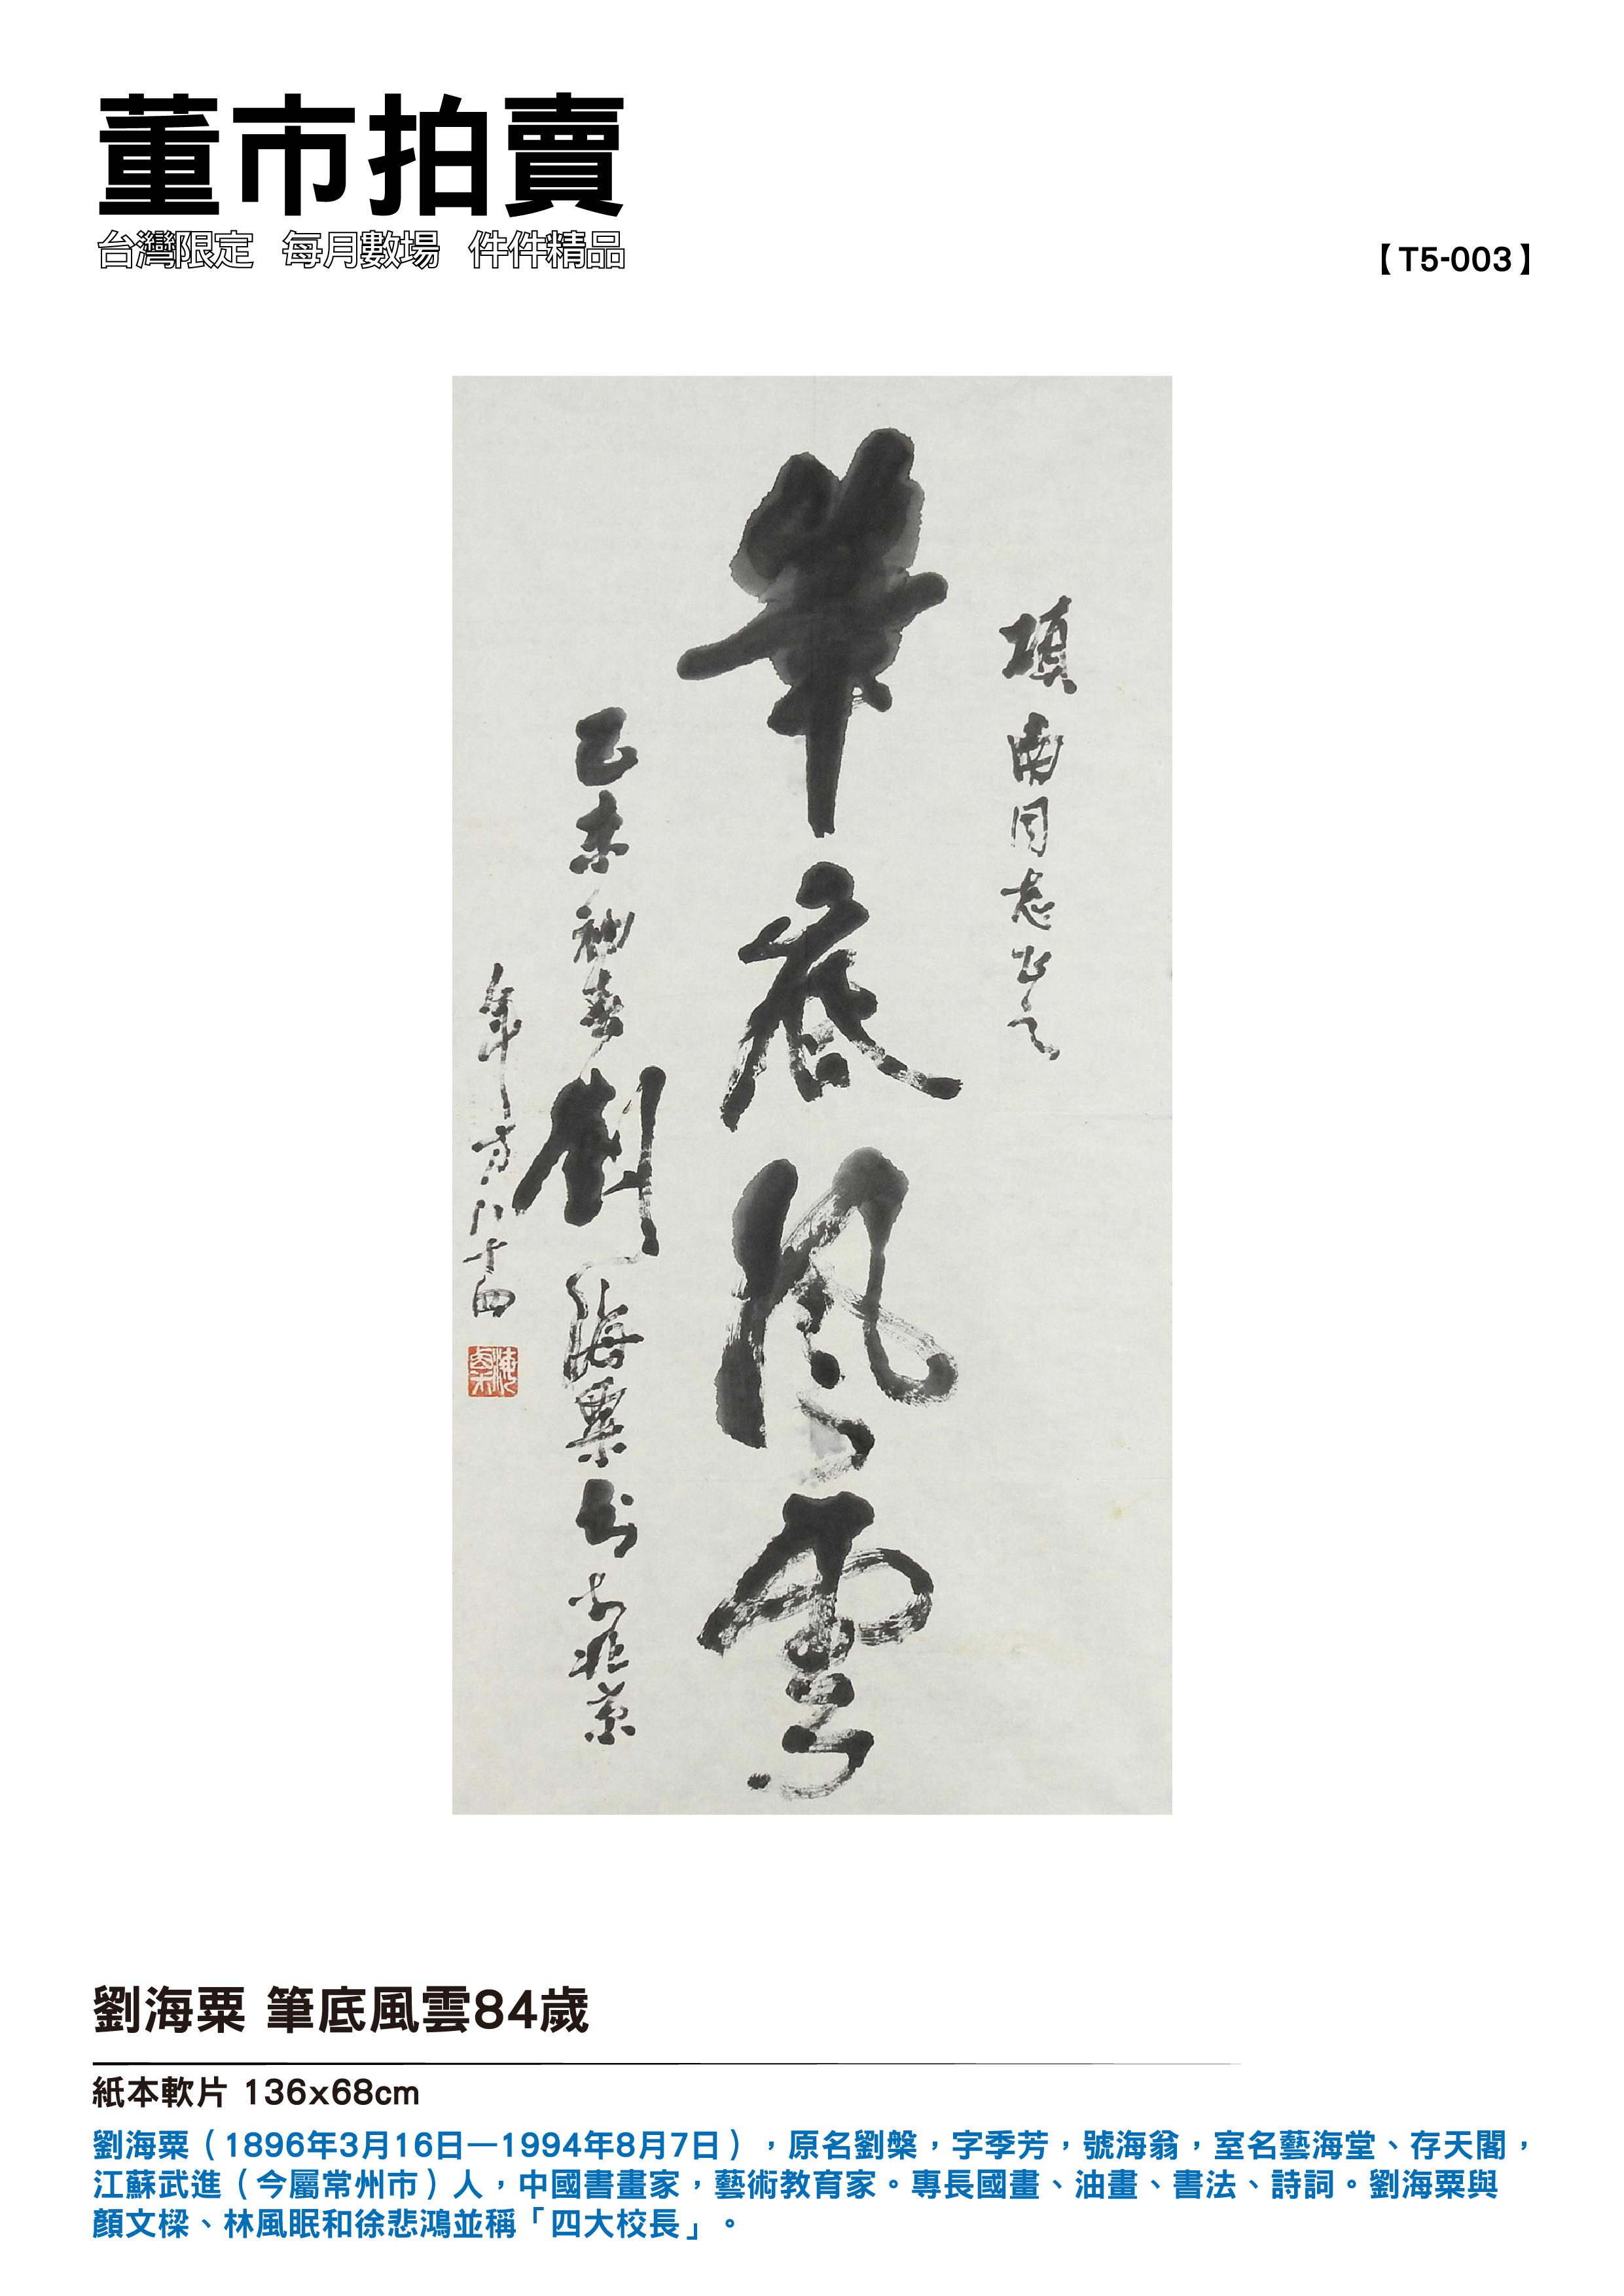 董市拍賣
台灣限定 每月數場 件件精品
【T5-003】
項南同志正之
筆底風雲
己未初春劉海粟書於北京
年方八十四
海粟
劉海粟 筆底風雲84歲
紙本軟片 136x68cm
劉海粟（1896年3月16日—1994年8月7日），原名劉槃，字季芳，號海翁，室名藝海堂、存天閣，
江蘇武進（今屬常州市）人，中國書畫家，藝術教育家。專長國畫、油畫、書法、詩詞。劉海粟與
顏文樑、林風眠和徐悲鴻並稱「四大校長」。